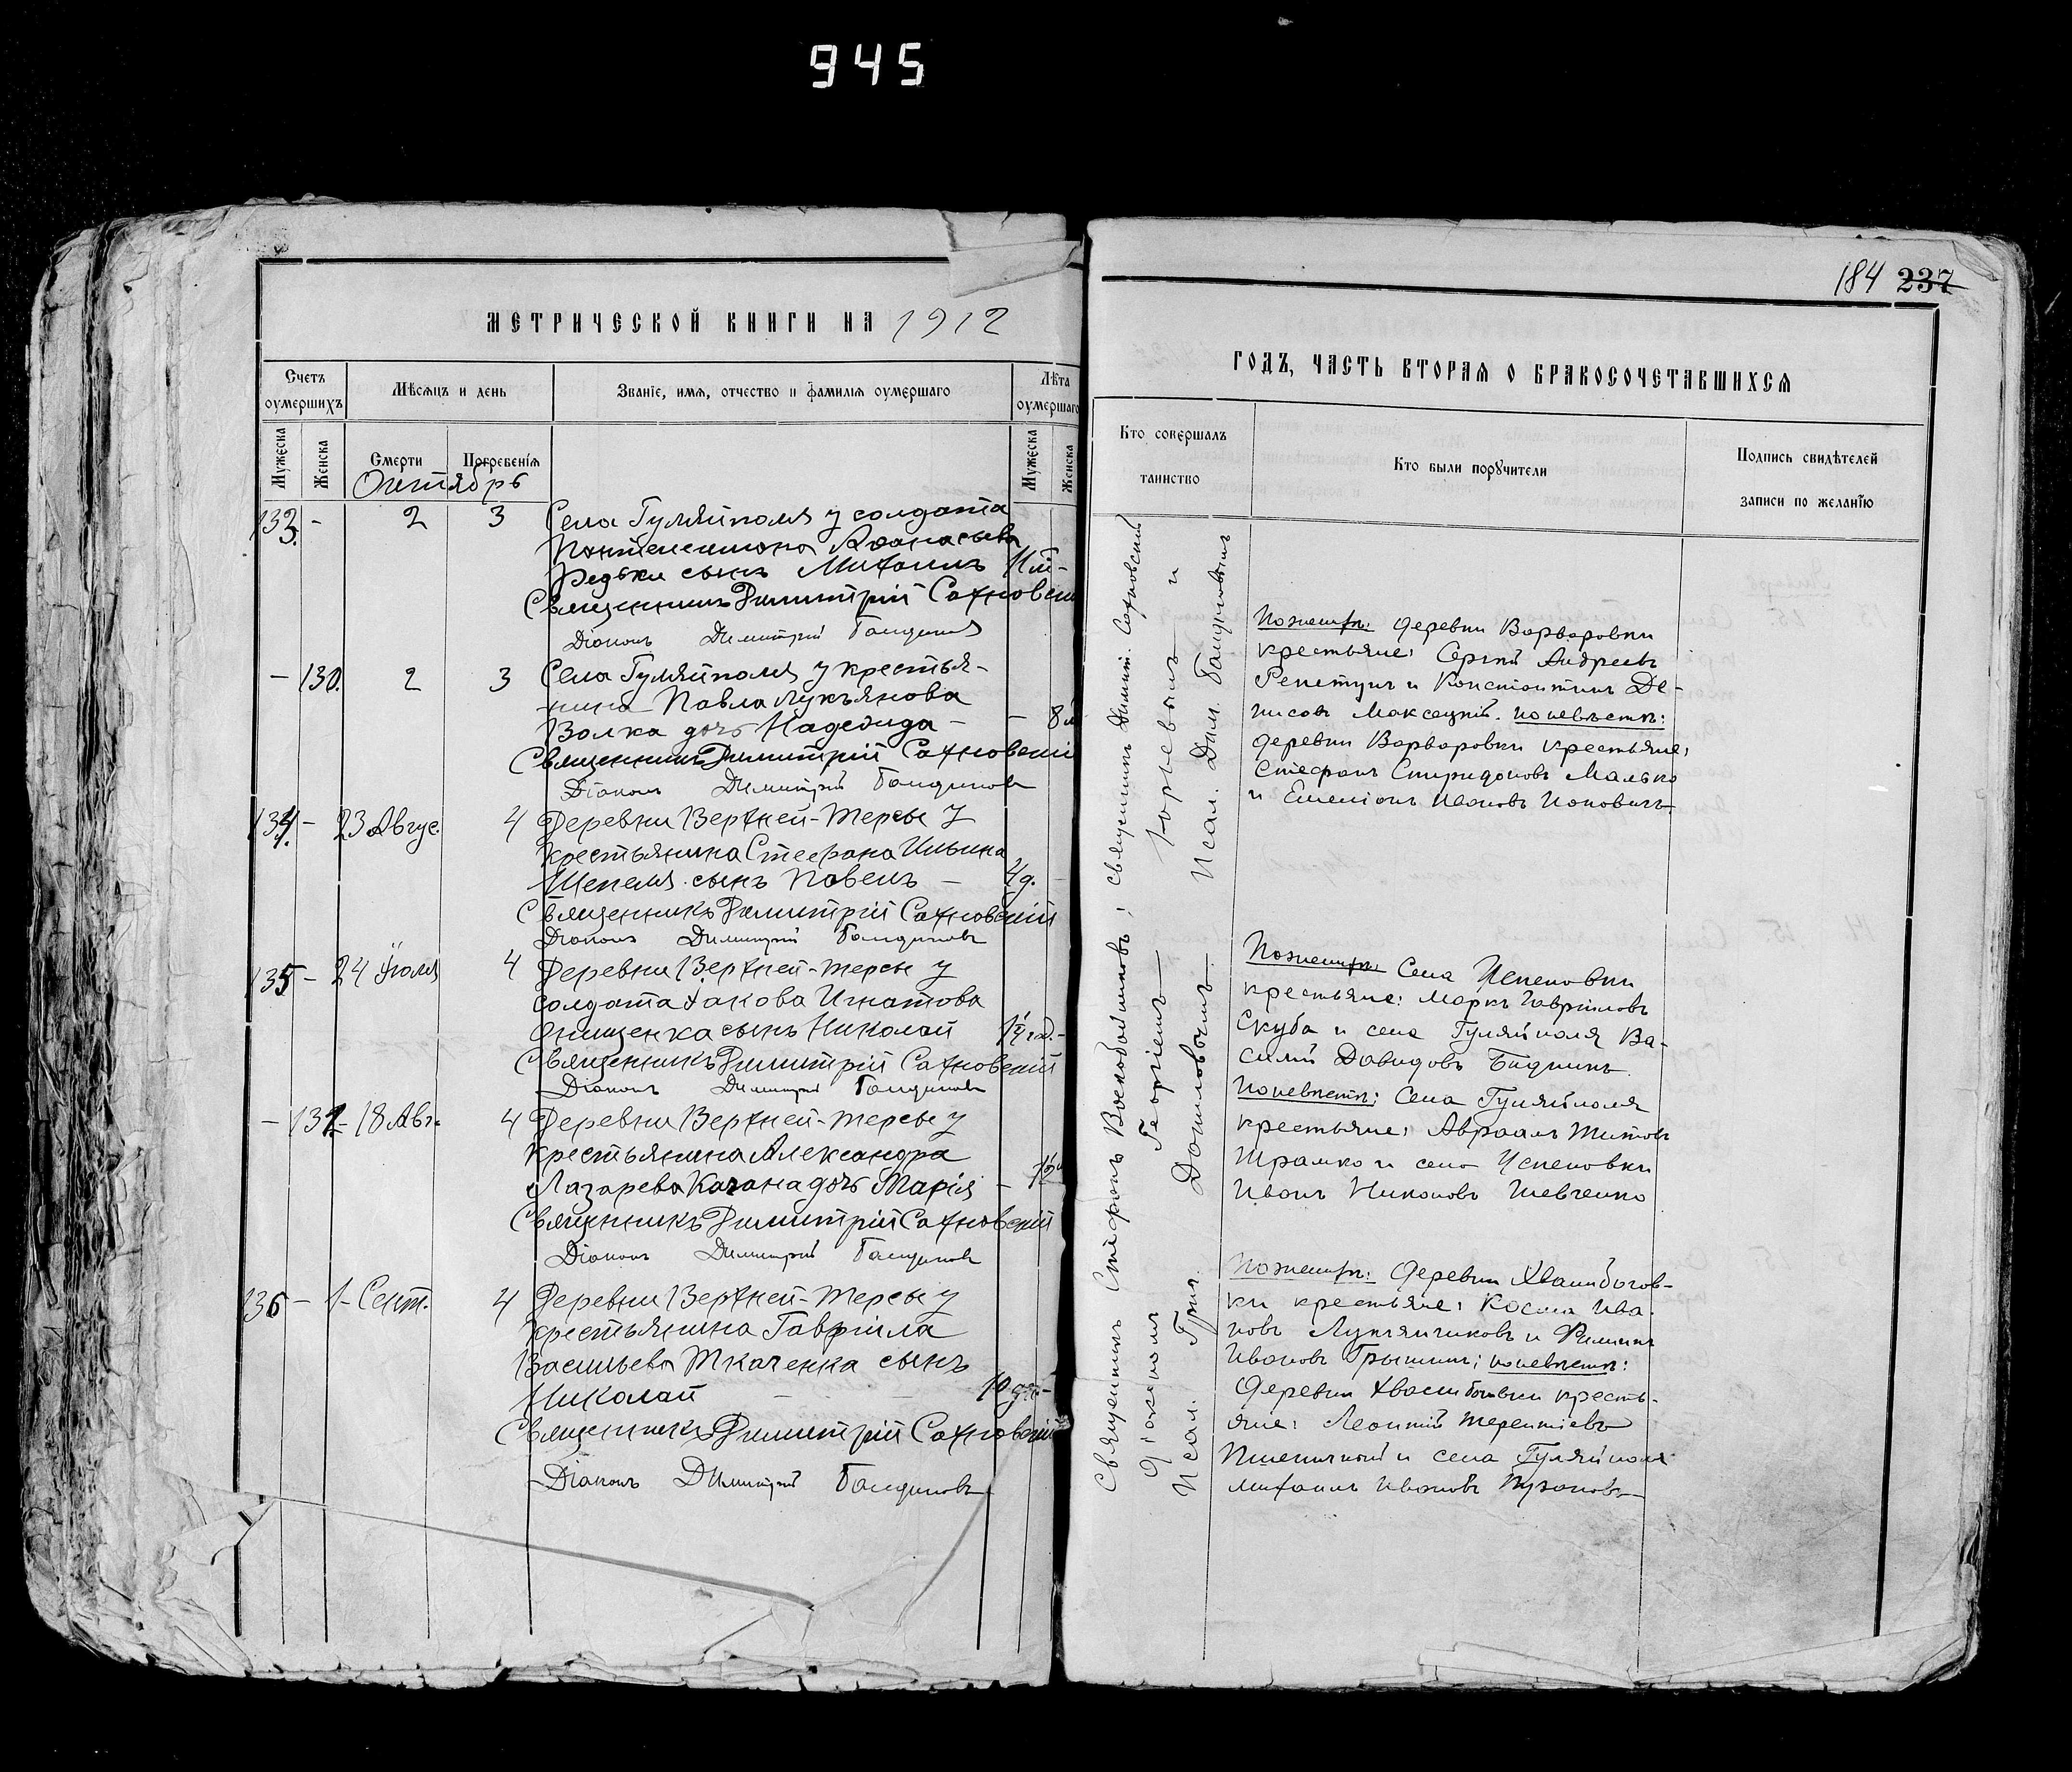 945
МЕТРИЧЕСКОЙ КНИГИ НА 1912
Счетъ оумершихъ
Мѣсяцъ и день
Званіе, имя, отчество и фамилія оумершаго
Лѣта оумершаго
Мужеска
Женска
Смерти
Погребенія
Мужеска
Женска
Октябрь
133. - 2 3 Села Гуляйполя у солдата
Пантелеимона Аѳанасьева
Редьки сынъ Михаилъ
Священникъ Димитрій Сахновскій
Діаконъ Димитрій
- 130. 2 3 Села Гуляйполя у крестья-
нина Павла Лукьянова
Волка дочь Надежда - - 8
Священникъ Димитрій Сахновскій
Діаконъ Димитрій
134. - 23 Авгус. 4 Деревни Верхней-Терсы у
крестьянина Стефана Ильина
Шепеля сынъ Павелъ -
Священникъ Димитрій Сахновскій
Діаконъ Димитрій
135 - 24 Іюля 4 Деревни Верхней-Терсы у
солдата Іакова Игнатова
Онищенка сынъ Николай
Священникъ Димитрій Сахновскій
Діаконъ Димитрій
- 131. - 18 Авг. 4 Деревни Верхней-Терсы у
крестьянина Александра
Лазарева Качана дочь Марія -
Священникъ Димитрій Сахновскій
Діаконъ Димитрій
136 - 1 Сент. 4 Деревни Верхней-Терсы у
крестьянина Гавріила
Васильева Ткаченка сынъ
Николай
Священникъ Димитрій Сахновскій
Діаконъ Димитрій
184 237
ГОДЪ, ЧАСТЬ ВТОРАЯ О БРАКОСОЧЕТАВШИХСЯ
Кто совершалъ
таинство
Кто были поручители
Подпись свидѣтелей
записи по желанію
Священникъ Стефанъ Воскобойниковъ; священникъ Димит. Сахновскій
діакономъ Георгіемъ Юрьевымъ и
Псал. Григ. Даниловымъ Псал. Дим.
По женихѣ: деревни Варваровки
крестьяне: Сергій Андреевъ
Репетунъ и Константинъ Де-
нисовъ Максецкій. по невѣстѣ:
деревни Варваровки крестьяне:
Стефанъ Спиридоновъ Малько
и Емеліанъ Ивановъ Поповичъ.
По женихѣ: Села Успеновки
крестьяне: Маркъ Гавриловъ
Скуба и села Гуляйполя Ва-
силій Давидовъ Бидникъ.
По невѣстѣ: Села Гуляйполя
крестьяне: Авраамъ Титовъ
Трамко и села Успеновки
Иванъ Никоновъ Шевченко
По женихѣ: деревни Хвалибогов-
ки крестьяне: Косма Ива-
новъ Лукьянчиковъ и Филиппъ
Ивановъ Гришинъ; по невѣстѣ:
деревни Хвалибоговки кресть-
яне: Леонтій Терентіевъ
Пшеничный и села Гуляйполя
Михаилъ Ивановъ Пузановъ